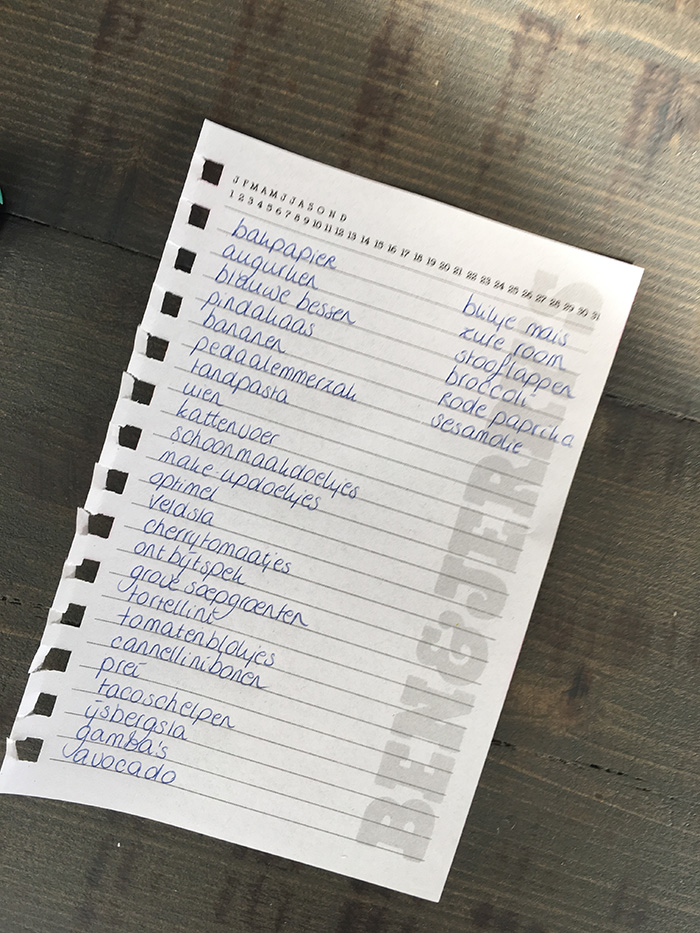 J F M A M J J A S O N D
1 2 3 4 5 6 7 8 9 10 11 12 13 14 15 16 17 18 19 20 21 22 23 24 25 26 27 28 29 30 31
bakpapier
augurken
blauwe bessen
pindakaas
bananen
pedaalemmerzak
tandpasta
uien
kattenvoer
schoonmaakdoekjes
make-updoekjes
optimel
veldsla
cherrytomaatjes
ontbijtspek
grove soepgroenten
tortellini
tomatenblokjes
cannellinibonen
prei
tacoschelpen
ijsbergsla
gamba's
avocado
blikje mais
zure room
stooflappen
broccoli
rode paprika
sesamolie
BEN&JERRY'S